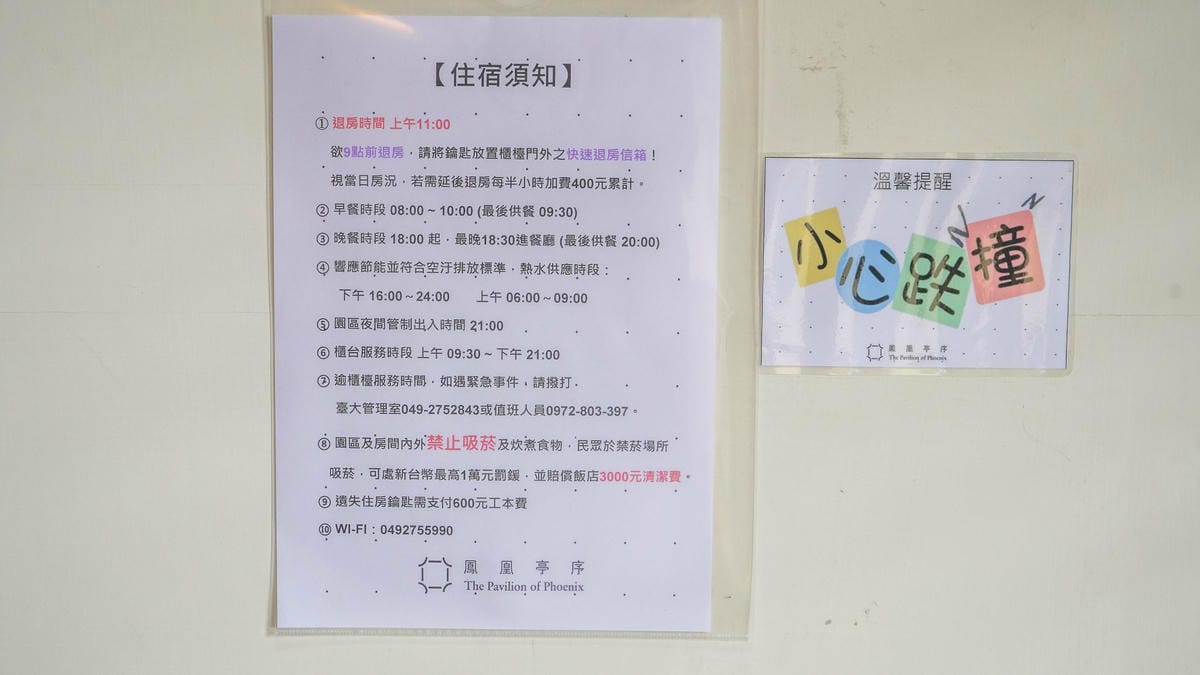 【住宿須知】
① 退房時間 上午11:00
欲9點前退房，請將鑰匙放置櫃檯門外之快速退房信箱！
視當日房況，若需延後退房每半小時加費400元累計。
② 早餐時段 08:00 ~ 10:00 (最後供餐 09:30)
③ 晚餐時段 18:00 起，最晚18:30進餐廳 (最後供餐 20:00)
④ 響應節能並符合空汙排放標準，熱水供應時段：
下午 16:00～24:00 上午 06:00～09:00
⑤ 園區夜間管制出入時間 21:00
⑥ 櫃台服務時段 上午 09:30 ~ 下午 21:00
⑦ 逾櫃檯服務時間，如遇緊急事件，請撥打
臺大管理室049-2752843或值班人員0972-803-397。
⑧ 園區及房間內外禁止吸菸及炊煮食物，民眾於禁菸場所
吸菸，可處新台幣最高1萬元罰鍰，並賠償飯店3000元清潔費。
⑨ 遺失住房鑰匙需支付600元工本費
⑩ WI-FI：0492755990
鳳凰亭序
The Pavilion of Phoenix
溫馨提醒
小心跌撞
鳳凰亭序
The Pavilion of Phoenix